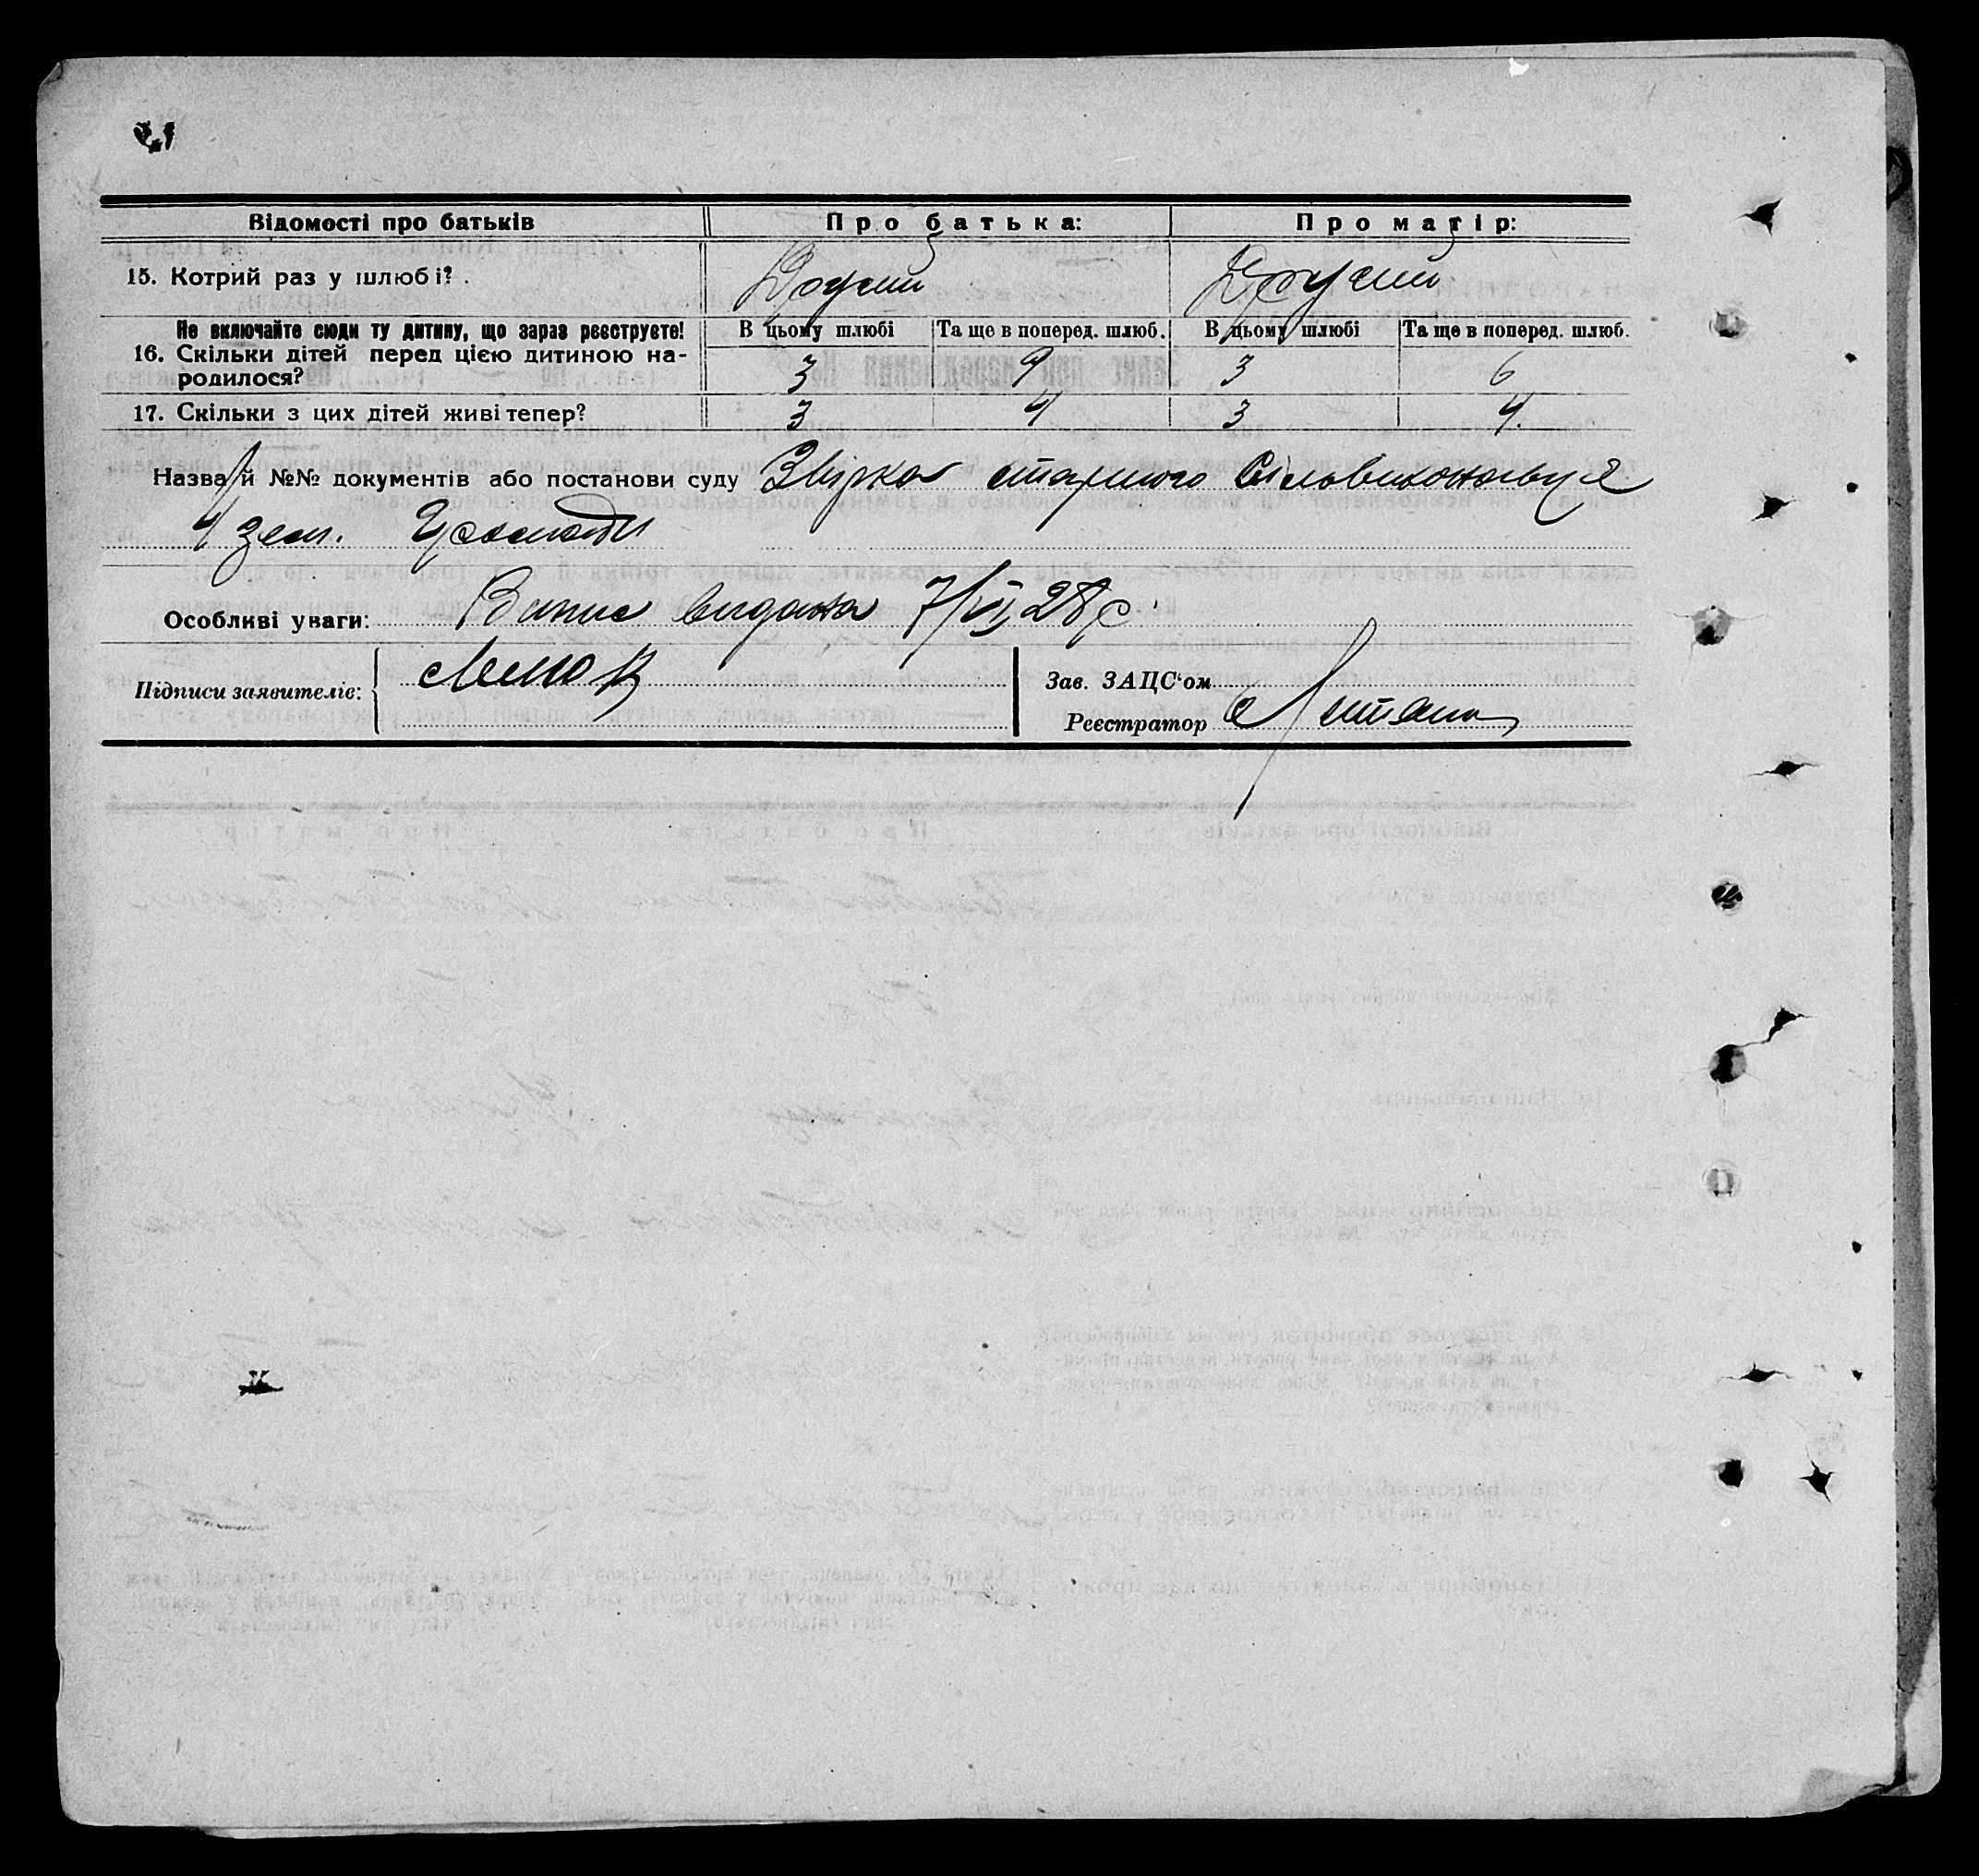 Відомості про батьків Про батька: Про матір:
15. Котрий раз у шлюбі? Другий Другий
Не включайте сюди ту дитину, що зараз реєструєте! В цьому шлюбі Та ще в поперед. шлюб. В цьому шлюбі Та ще в поперед. шлюб.
16. Скільки дітей перед цією дитиною на-
родилося? 3 9 3 6
17. Скільки з цих дітей живі тепер? 3 4 3 4.
Назва й №№ документів або постанови суду Звірка старшого Сільвиконавця
4 зем. Громади
Особливі уваги: Випис видана 7/VI 28 р.
Підписи заявителів:
Зав. ЗАЦС'ом
Реєстратор